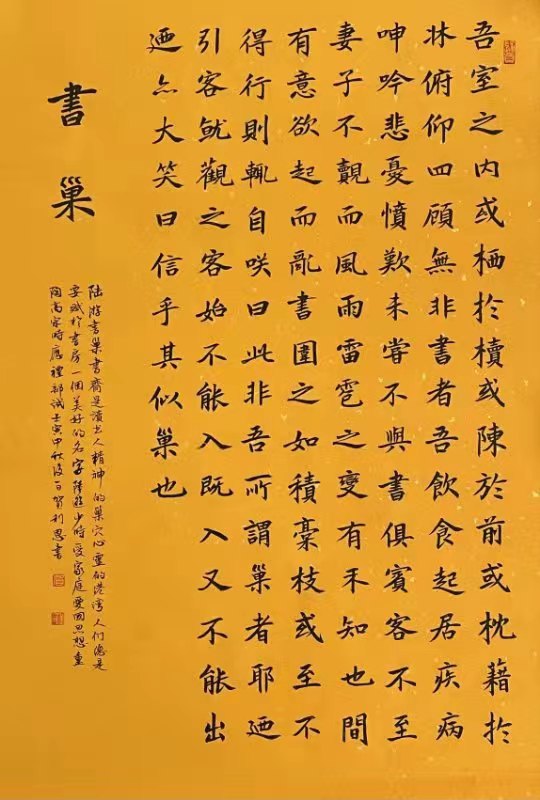 吾室之内或栖於櫝或陳於前或枕藉於
牀俯仰四顧無非書者吾飲食起居疾病
呻吟悲憂憤歎未嘗不與書俱賓客不至
妻子不覿而風雨雷雹之變有不知也間
有意欲起而亂書圍之如積槀枝或至不
得行則輒自咲曰此非吾所謂巢者耶迺
引客就觀之客始不能入既入又不能出
迺亦大笑曰信乎其似巢也
書巢
陸游書巢書齋是讀書人精神的巢穴心靈的港湾人们總是
要賦於書房一個美好的名字陸游少時受家庭愛國思想熏
陶高宗時應禮部試壬寅中秋後賀利恩書